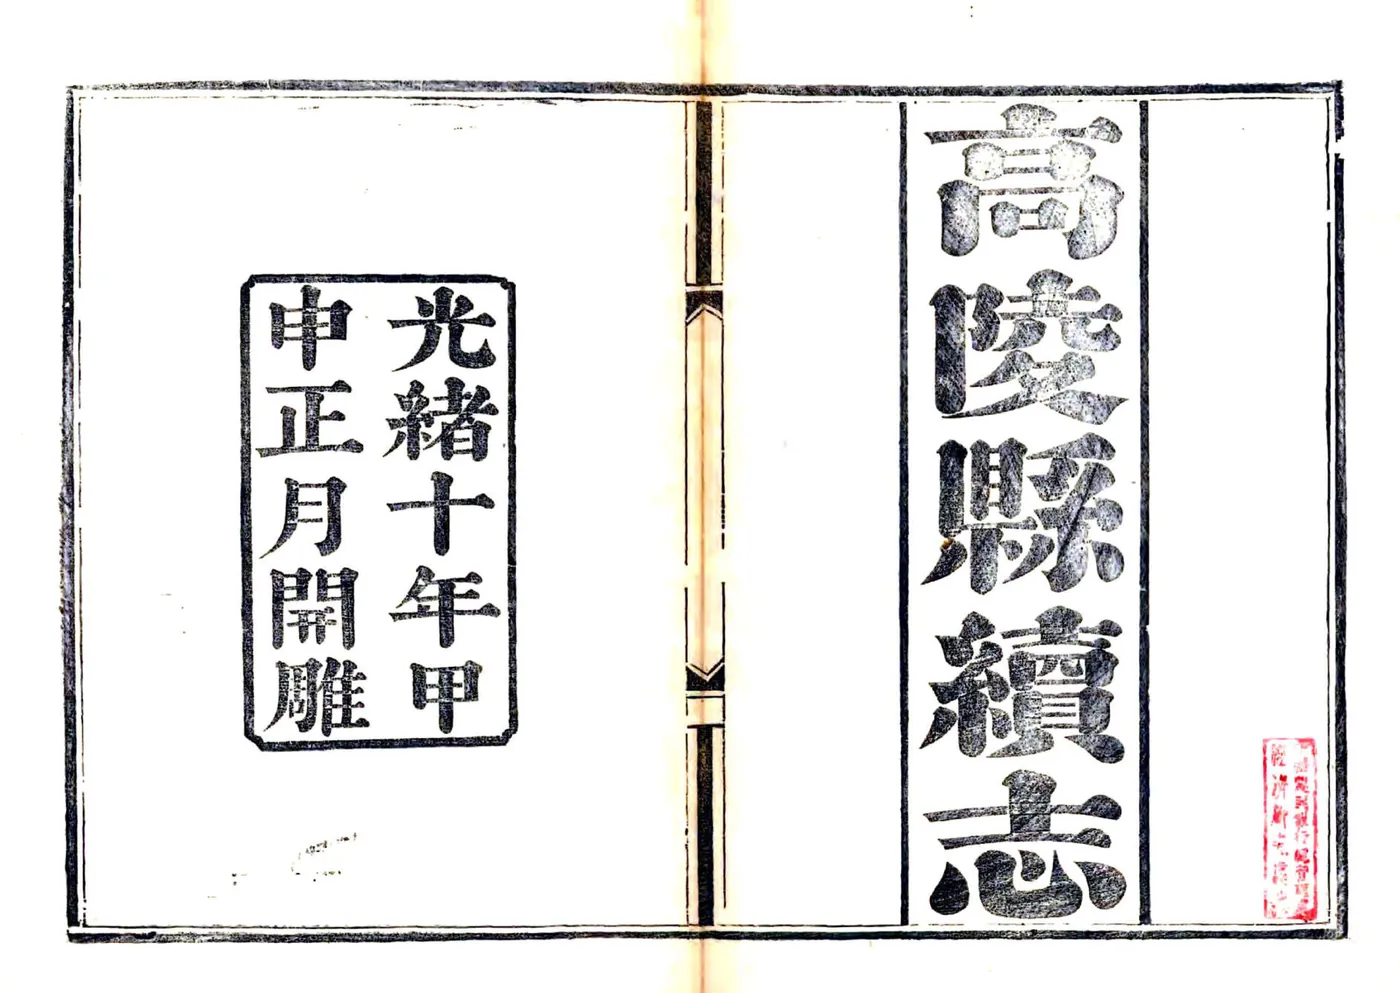 高陵縣續志
光緒十年甲
申正月開雕